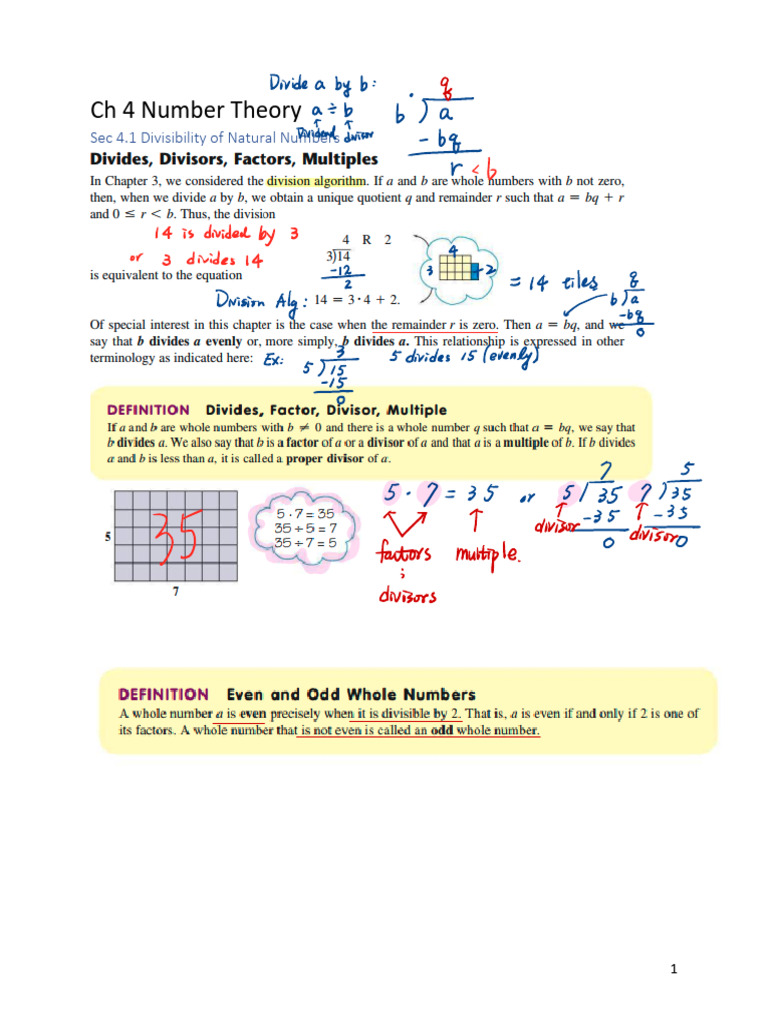 Divide a by b:
q
b ) a
- bq
r < b
Ch 4 Number Theory a ÷ b
Dividend divisor
Sec 4.1 Divisibility of Natural Numbers
Divides, Divisors, Factors, Multiples
In Chapter 3, we considered the division algorithm. If a and b are whole numbers with b not zero,
then, when we divide a by b, we obtain a unique quotient q and remainder r such that a = bq + r
and 0 ≤ r < b. Thus, the division
14 is divided by 3
or 3 divides 14
4 R 2
3)14
-12
2
4
3
2
= 14 tiles
is equivalent to the equation
Division Alg: 14 = 3 · 4 + 2.
q
b)a
-bq
0
Of special interest in this chapter is the case when the remainder r is zero. Then a = bq, and we
say that b divides a evenly or, more simply, b divides a. This relationship is expressed in other
terminology as indicated here: Ex:
3
5)15
-15
0
5 divides 15 (evenly)
DEFINITION Divides, Factor, Divisor, Multiple
If a and b are whole numbers with b ≠ 0 and there is a whole number q such that a = bq, we say that
b divides a. We also say that b is a factor of a or a divisor of a and that a is a multiple of b. If b divides
a and b is less than a, it is called a proper divisor of a.
5
35
7
5 · 7 = 35
35 ÷ 5 = 7
35 ÷ 7 = 5
5 · 7 = 35 or
factors multiple.
;
divisors
7
5)35
-35
0
divisor
5
7)35
-35
0
divisor
DEFINITION Even and Odd Whole Numbers
A whole number a is even precisely when it is divisible by 2. That is, a is even if and only if 2 is one of
its factors. A whole number that is not even is called an odd whole number.
1